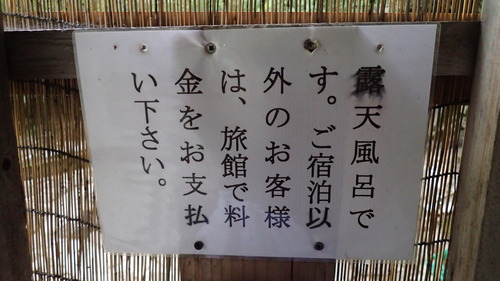 露天風呂で
す。ご宿泊以
外のお客様
は、旅館で料
金をお支払
い下さい。